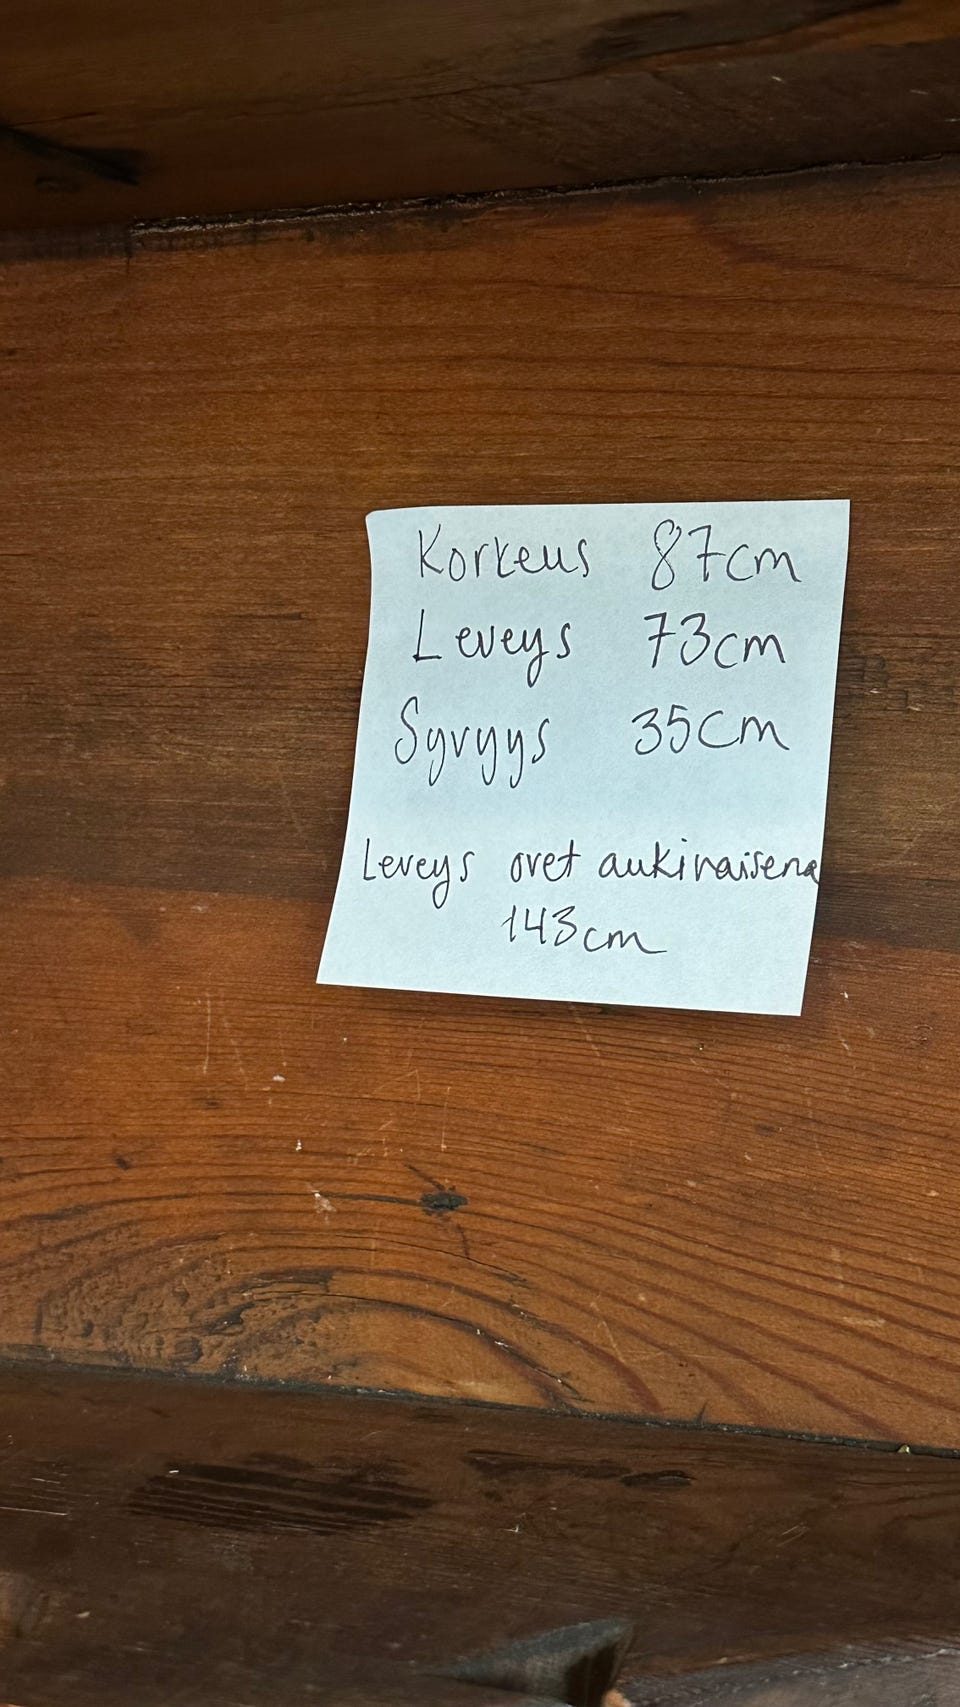 Korkeus 87cm
Leveys 73cm
Syvyys 35cm
Leveys ovet aukinaisena
143cm